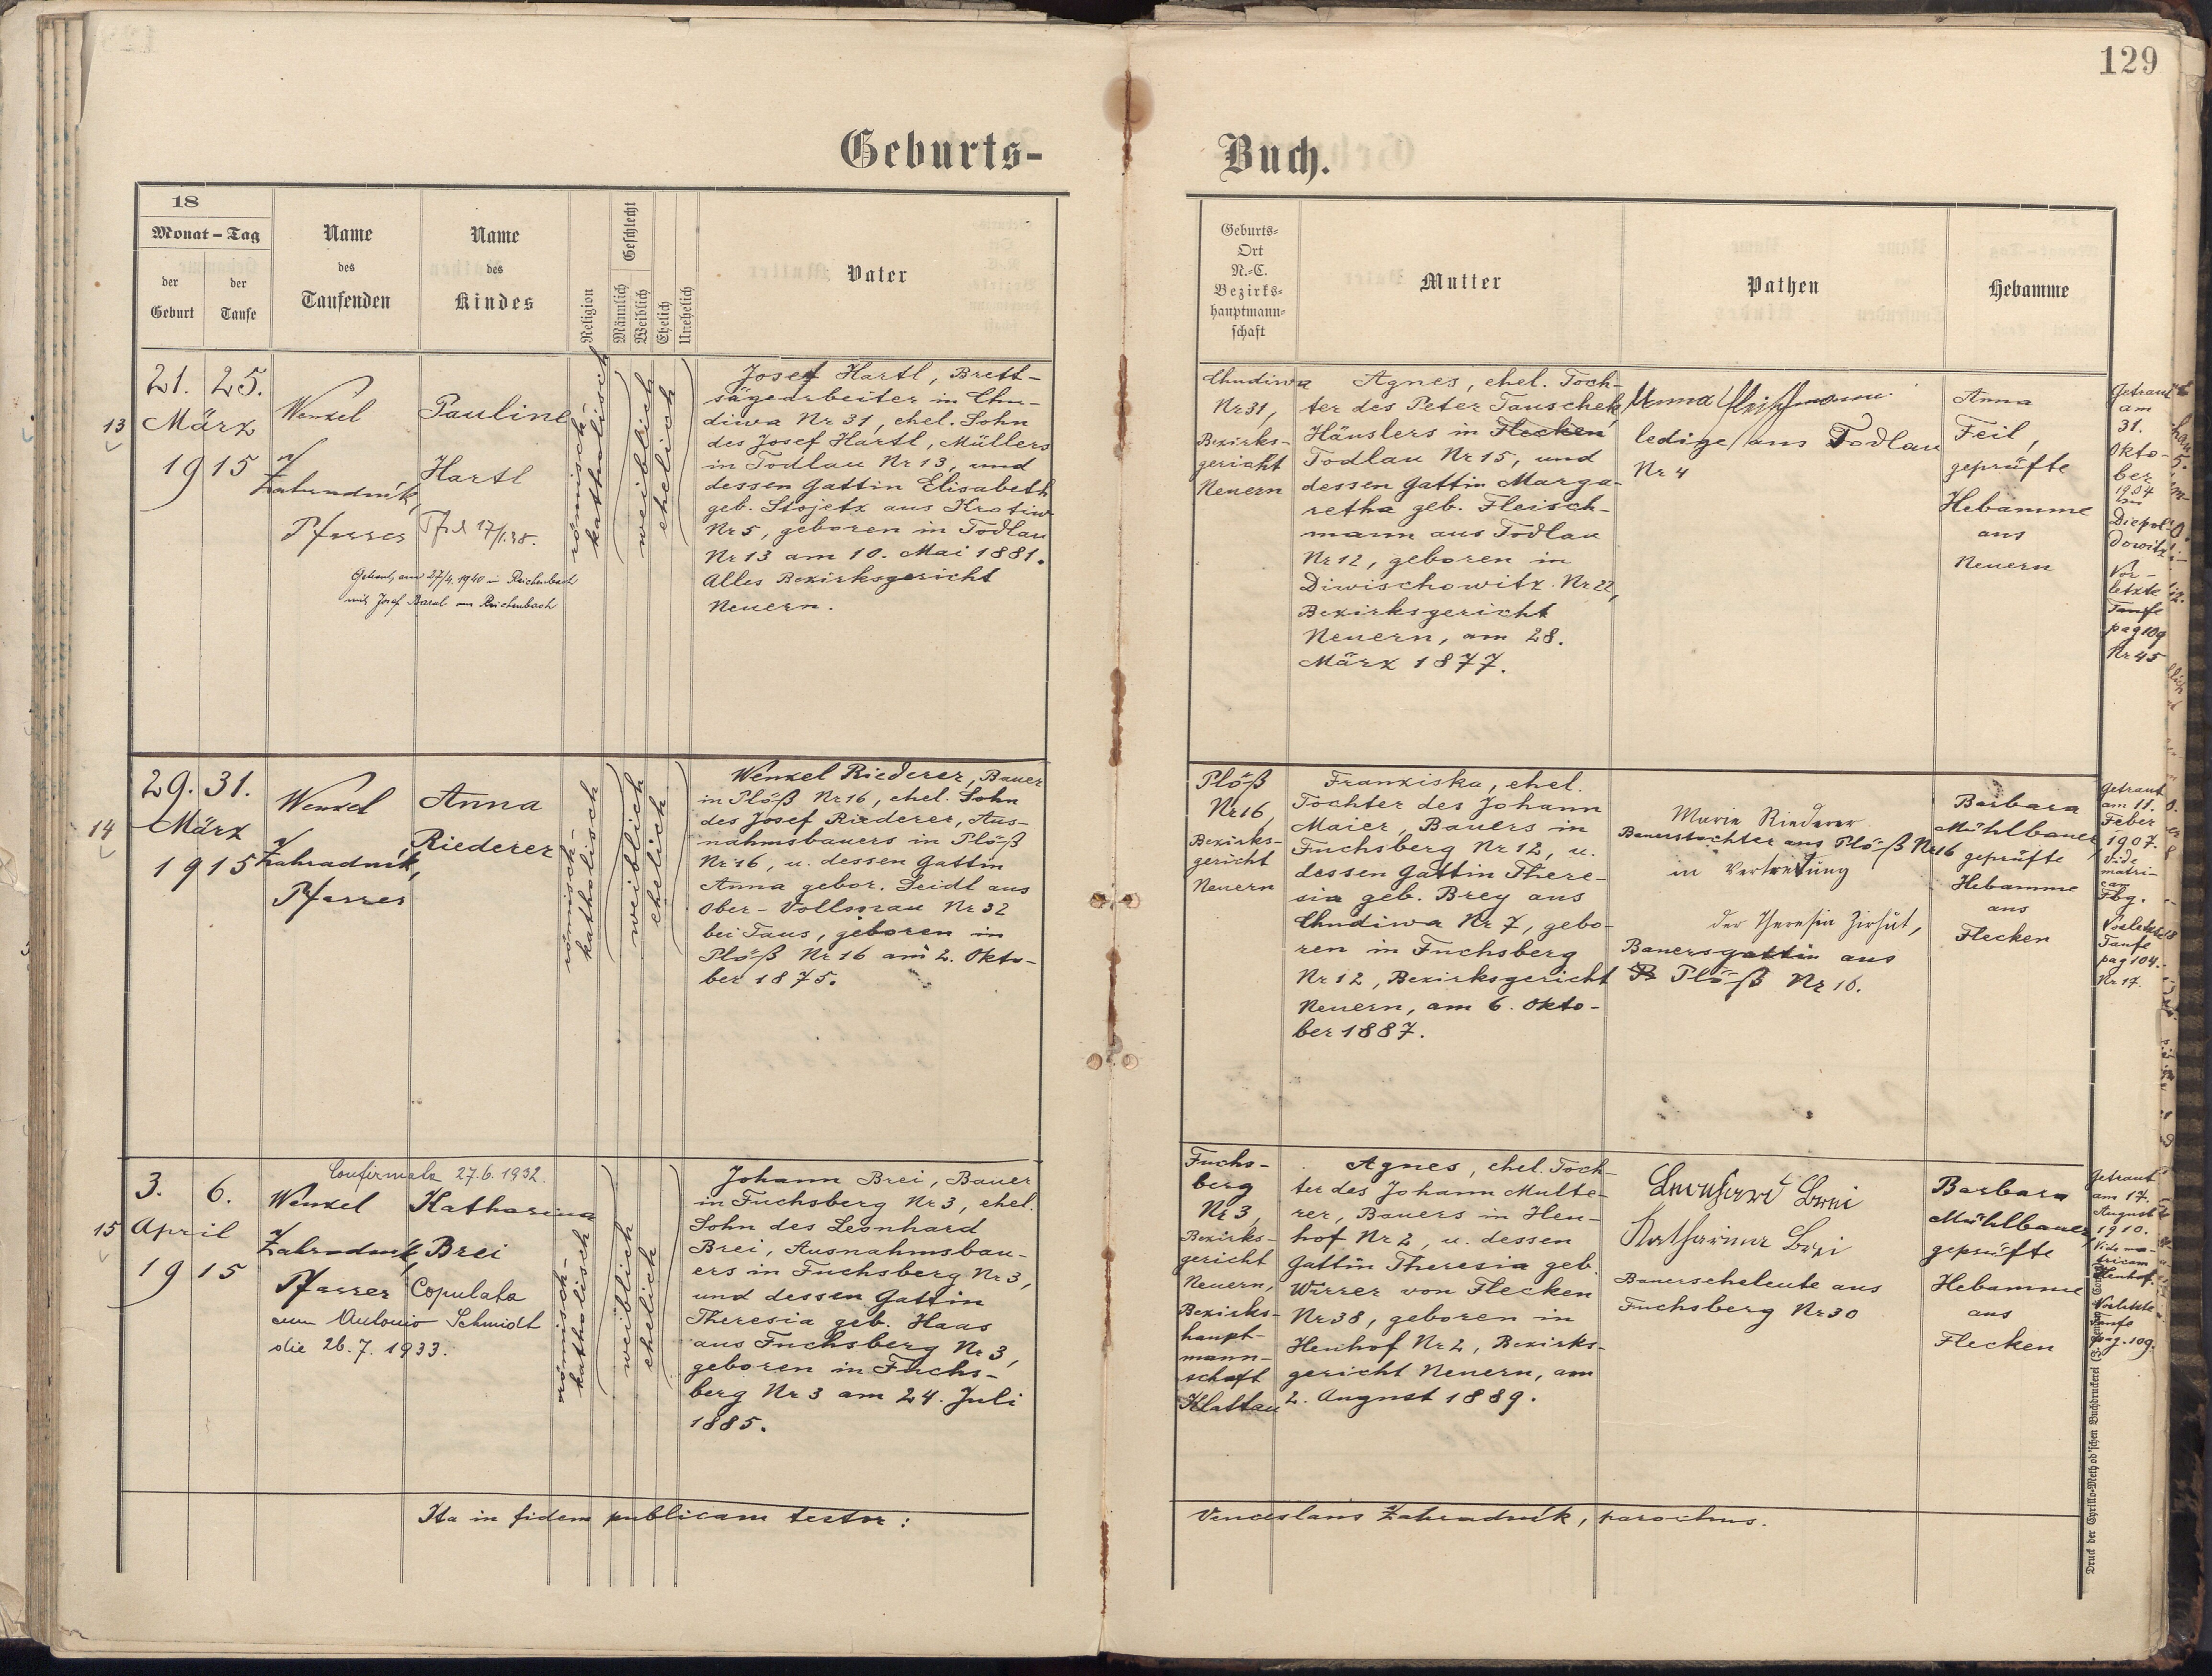 129
Geburts-
Buch.
18
Monat – Tag
der Geburt
der Taufe
Name des Taufenden
Name des Kindes
Religion
Geschlecht
Männlich
Weiblich
Ehelich
Unehelich
Vater
Geburts-
Ort
N.-C.
Bezirks-
hauptmann-
schaft
Mutter
Pathen
Hebamme
13
21. 25.
März
1915
Wenzel
Zahradník,
Pfarrer
Pauline
Hartl
17/1.38.
Getraut am 27/4. 1940 in Reichenbach
mit Josef Baral aus Reichenbach
römisch-
katholisch
weiblich
ehelich
Josef Hartl, Brett-
sägearbeiter in Chu-
diwa Nr 31, ehel. Sohn
des Josef Hartl, Müllers
in Todlau Nr 13, und
dessen Gattin Elisabeth
geb. Stojetz aus Krotiw
Nr 5, geboren in Todlau
Nr 13 am 10. Mai 1881.
Alles Bezirksgericht
Neuern.
Chudiwa
Nr 31,
Bezirks-
gericht
Neuern
Agnes, ehel. Toch-
ter des Peter Tauschek,
Häuslers in Flecken
Todlau Nr 15, und
dessen Gattin Marga-
retha geb. Fleisch-
mann aus Todlau
Nr 12, geboren in
Diwischowitz Nr 22,
Bezirksgericht
Neuern, am 28.
März 1877.
Anna Fleischmann
ledige aus Todlau
Nr 4
Anna
Feil,
geprüfte
Hebamme
aus
Neuern
Getraut
am
31.
Okto-
ber
1904
in
Diepol-
dowitz
Vor-
letzte
Taufe
pag 109
Nr 45
14
29. 31.
März
1915
Wenzel
Zahradník,
Pfarrer
Anna
Riederer
römisch-
katholisch
weiblich
ehelich
Wenzel Riederer, Bauer
in Plöß Nr 16, ehel. Sohn
des Josef Riederer, Aus-
nahmsbauers in Plöß
Nr 16, u. dessen Gattin
Anna gebor. Seidl aus
Ober-Vollmau Nr 32
bei Taus, geboren in
Plöß Nr 16 am 2. Okto-
ber 1875.
Plöß
Nr 16,
Bezirks-
gericht
Neuern
Franziska, ehel.
Tochter des Johann
Maier, Bauers in
Fuchsberg Nr 12, u.
dessen Gattin There-
sia geb. Brey aus
Chudiwa Nr 7, gebo-
ren in Fuchsberg
Nr 12, Bezirksgericht
Neuern, am 6. Okto-
ber 1887.
Marie Riederer
Bauerstochter aus Plöß Nr 16
in Vertretung
der Theresia Zirhut,
Bauersgattin aus
Plöß Nr 10.
Barbara
Mühlbauer,
geprüfte
Hebamme
aus
Flecken
Getraut
am 11.
Feber
1907.
Vide
matri-
cam
Fbg.
Vorletzte
Taufe
pag 104.
Nr 17.
15
3. 6.
April
1915
Confirmata 27.6.1932.
Wenzel
Zahradník,
Pfarrer
Katharina
Brei
Copulata
cum Antonio Schmidt
die 26. 7. 1933.
römisch-
katholisch
weiblich
ehelich
Johann Brei, Bauer
in Fuchsberg Nr 3, ehel.
Sohn des Leonhard
Brei, Ausnahmsbau-
ers in Fuchsberg Nr 3,
und dessen Gattin
Theresia geb. Haas
aus Fuchsberg Nr 3,
geboren in Fuchs-
berg Nr 3 am 24. Juli
1885.
Fuchs-
berg
Nr 3,
Bezirks-
gericht
Neuern,
Bezirks-
haupt-
mann-
schaft
Klattau
Agnes, ehel. Toch-
ter des Johann Multe-
rer, Bauers in Hen-
hof Nr 2, u. dessen
Gattin Theresia geb.
Wirrer von Flecken
Nr 38, geboren in
Henhof Nr 2, Bezirks-
gericht Neuern, am
2. August 1889.
Leonhard Brei
Katharina Brei
Bauerseheleute aus
Fuchsberg Nr 30
Barbara
Mühlbauer,
geprüfte
Hebamme
aus
Flecken
Getraut
am 17.
August
1910.
Vide ma-
tricam
Henhof.
Vorletzte
Taufe
pag. 109.
Ita in fidem publicam testor:
Venceslaus Zahradník, parochus.
Druck der Cyrillo-Method'schen Buchdruckerei